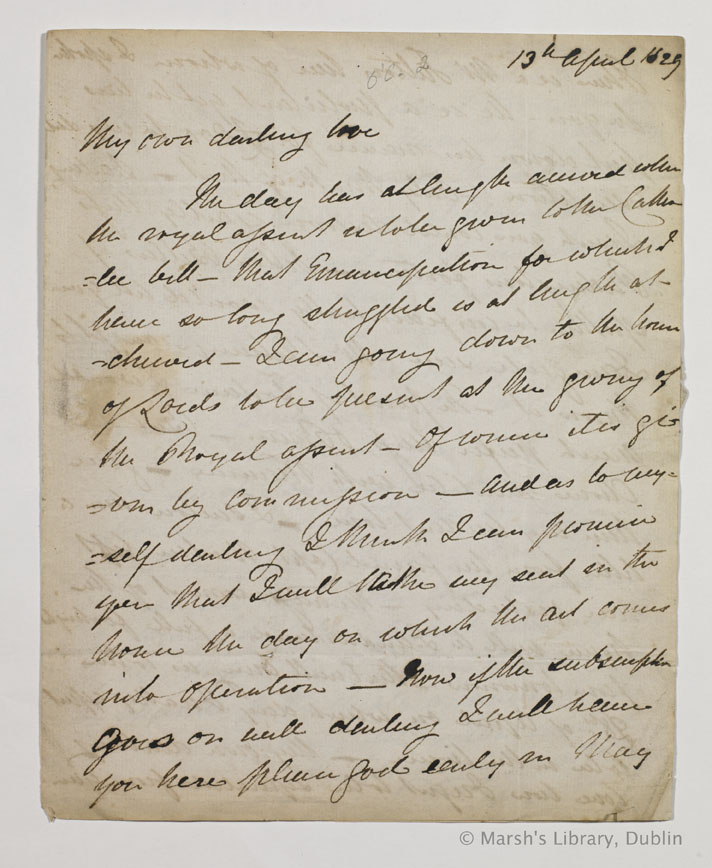 13th April 1829
My own darling love
The day has at length arived when
the royal assent is to be given to the Catho
=lic bill – that Emancipation for which I
have so long struggled is at length at-
=cheived – I am going down to the house
of Lords to be present at the giving of
the Royal assent – Of course it is gi=
=ven by commission – And as to my=
=self darling I think I can promise
you that I will take my seat in the
house the day on which the act comes
into operation – Now if the subscription
goes on well darling I will have
you here please God early in May
© Marsh's Library, Dublin